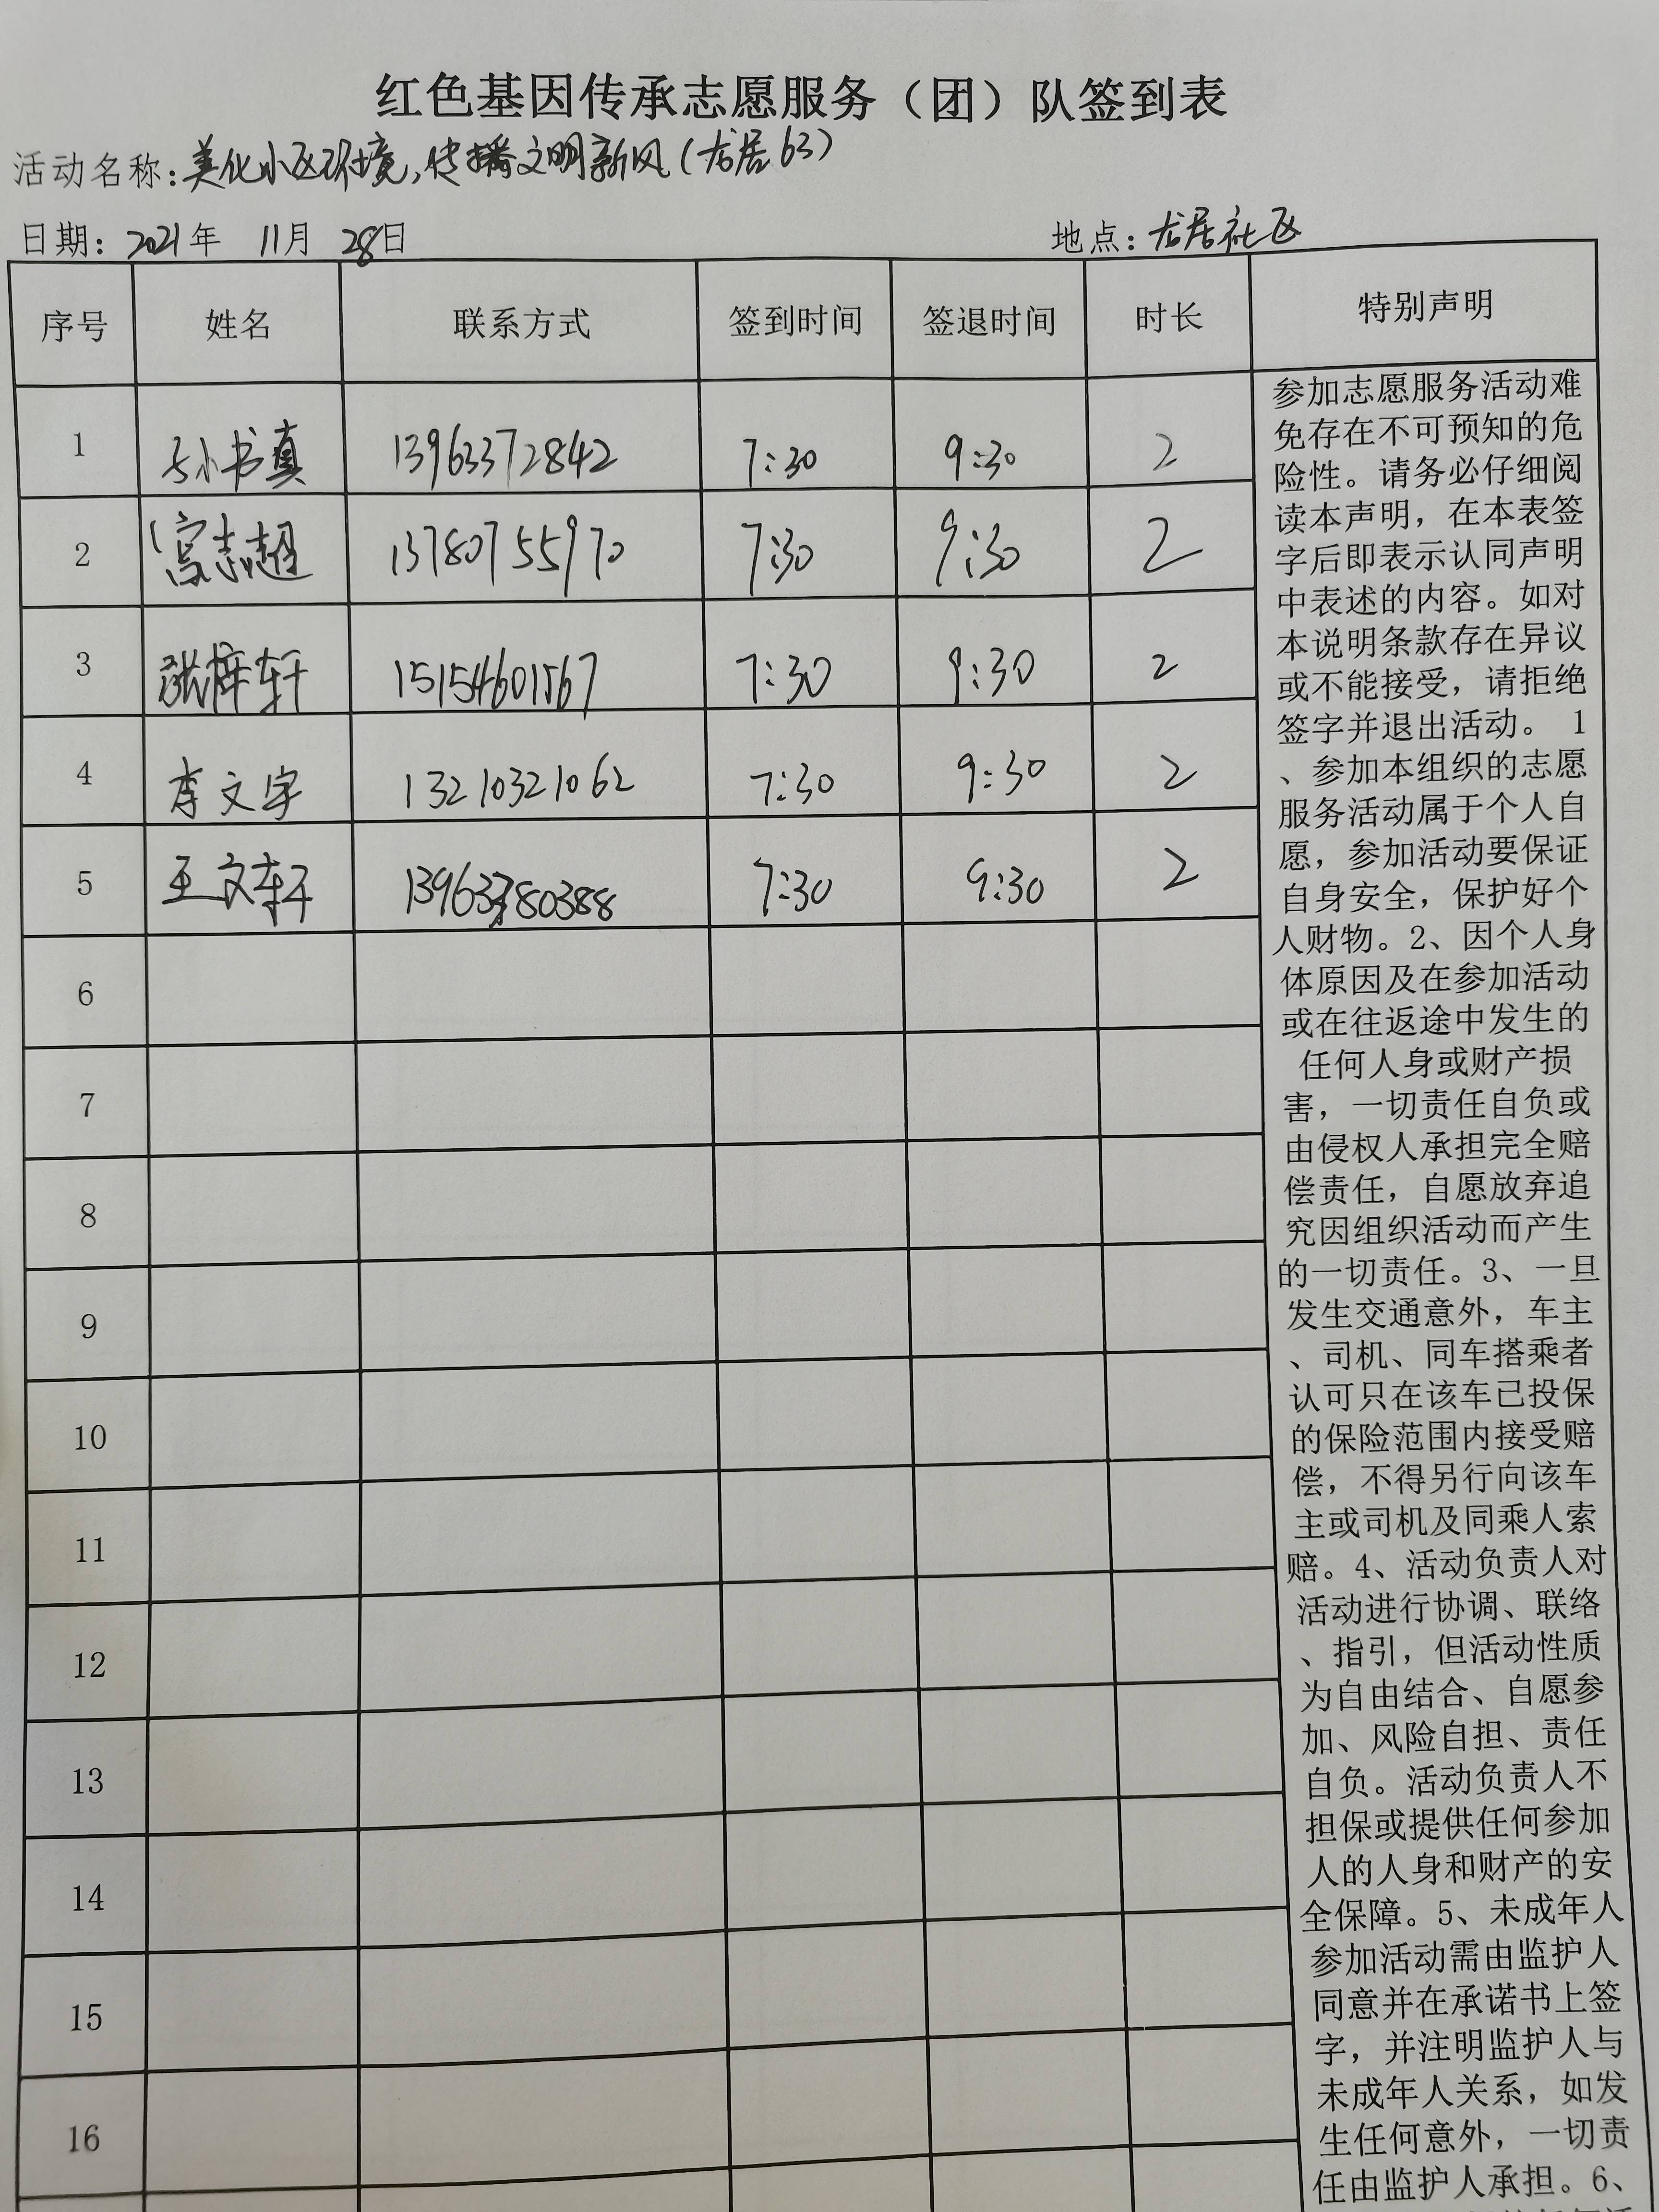 红色基因传承志愿服务（团）队签到表
活动名称：美化小区环境，传播文明新风（龙居63）
日期：2021年 11月 28日 地点：龙居社区
序号 姓名 联系方式 签到时间 签退时间 时长 特别声明
1 孙书真 13963372842 7:30 9:30 2
2 宫志超 13780755970 7:30 9:30 2
3 张梓轩 15154601567 7:30 9:30 2
4 李文宇 13210321062 7:30 9:30 2
5 王文轩 13963780388 7:30 9:30 2
6
7
8
9
10
11
12
13
14
15
16
参加志愿服务活动难
免存在不可预知的危
险性。请务必仔细阅
读本声明，在本表签
字后即表示认同声明
中表述的内容。如对
本说明条款存在异议
或不能接受，请拒绝
签字并退出活动。 1
、参加本组织的志愿
服务活动属于个人自
愿，参加活动要保证
自身安全，保护好个
人财物。2、因个人身
体原因及在参加活动
或在往返途中发生的
任何人身或财产损
害，一切责任自负或
由侵权人承担完全赔
偿责任，自愿放弃追
究因组织活动而产生
的一切责任。3、一旦
发生交通意外，车主
、司机、同车搭乘者
认可只在该车已投保
的保险范围内接受赔
偿，不得另行向该车
主或司机及同乘人索
赔。4、活动负责人对
活动进行协调、联络
、指引，但活动性质
为自由结合、自愿参
加、风险自担、责任
自负。活动负责人不
担保或提供任何参加
人的人身和财产的安
全保障。5、未成年人
参加活动需由监护人
同意并在承诺书上签
字，并注明监护人与
未成年人关系，如发
生任何意外，一切责
任由监护人承担。6、